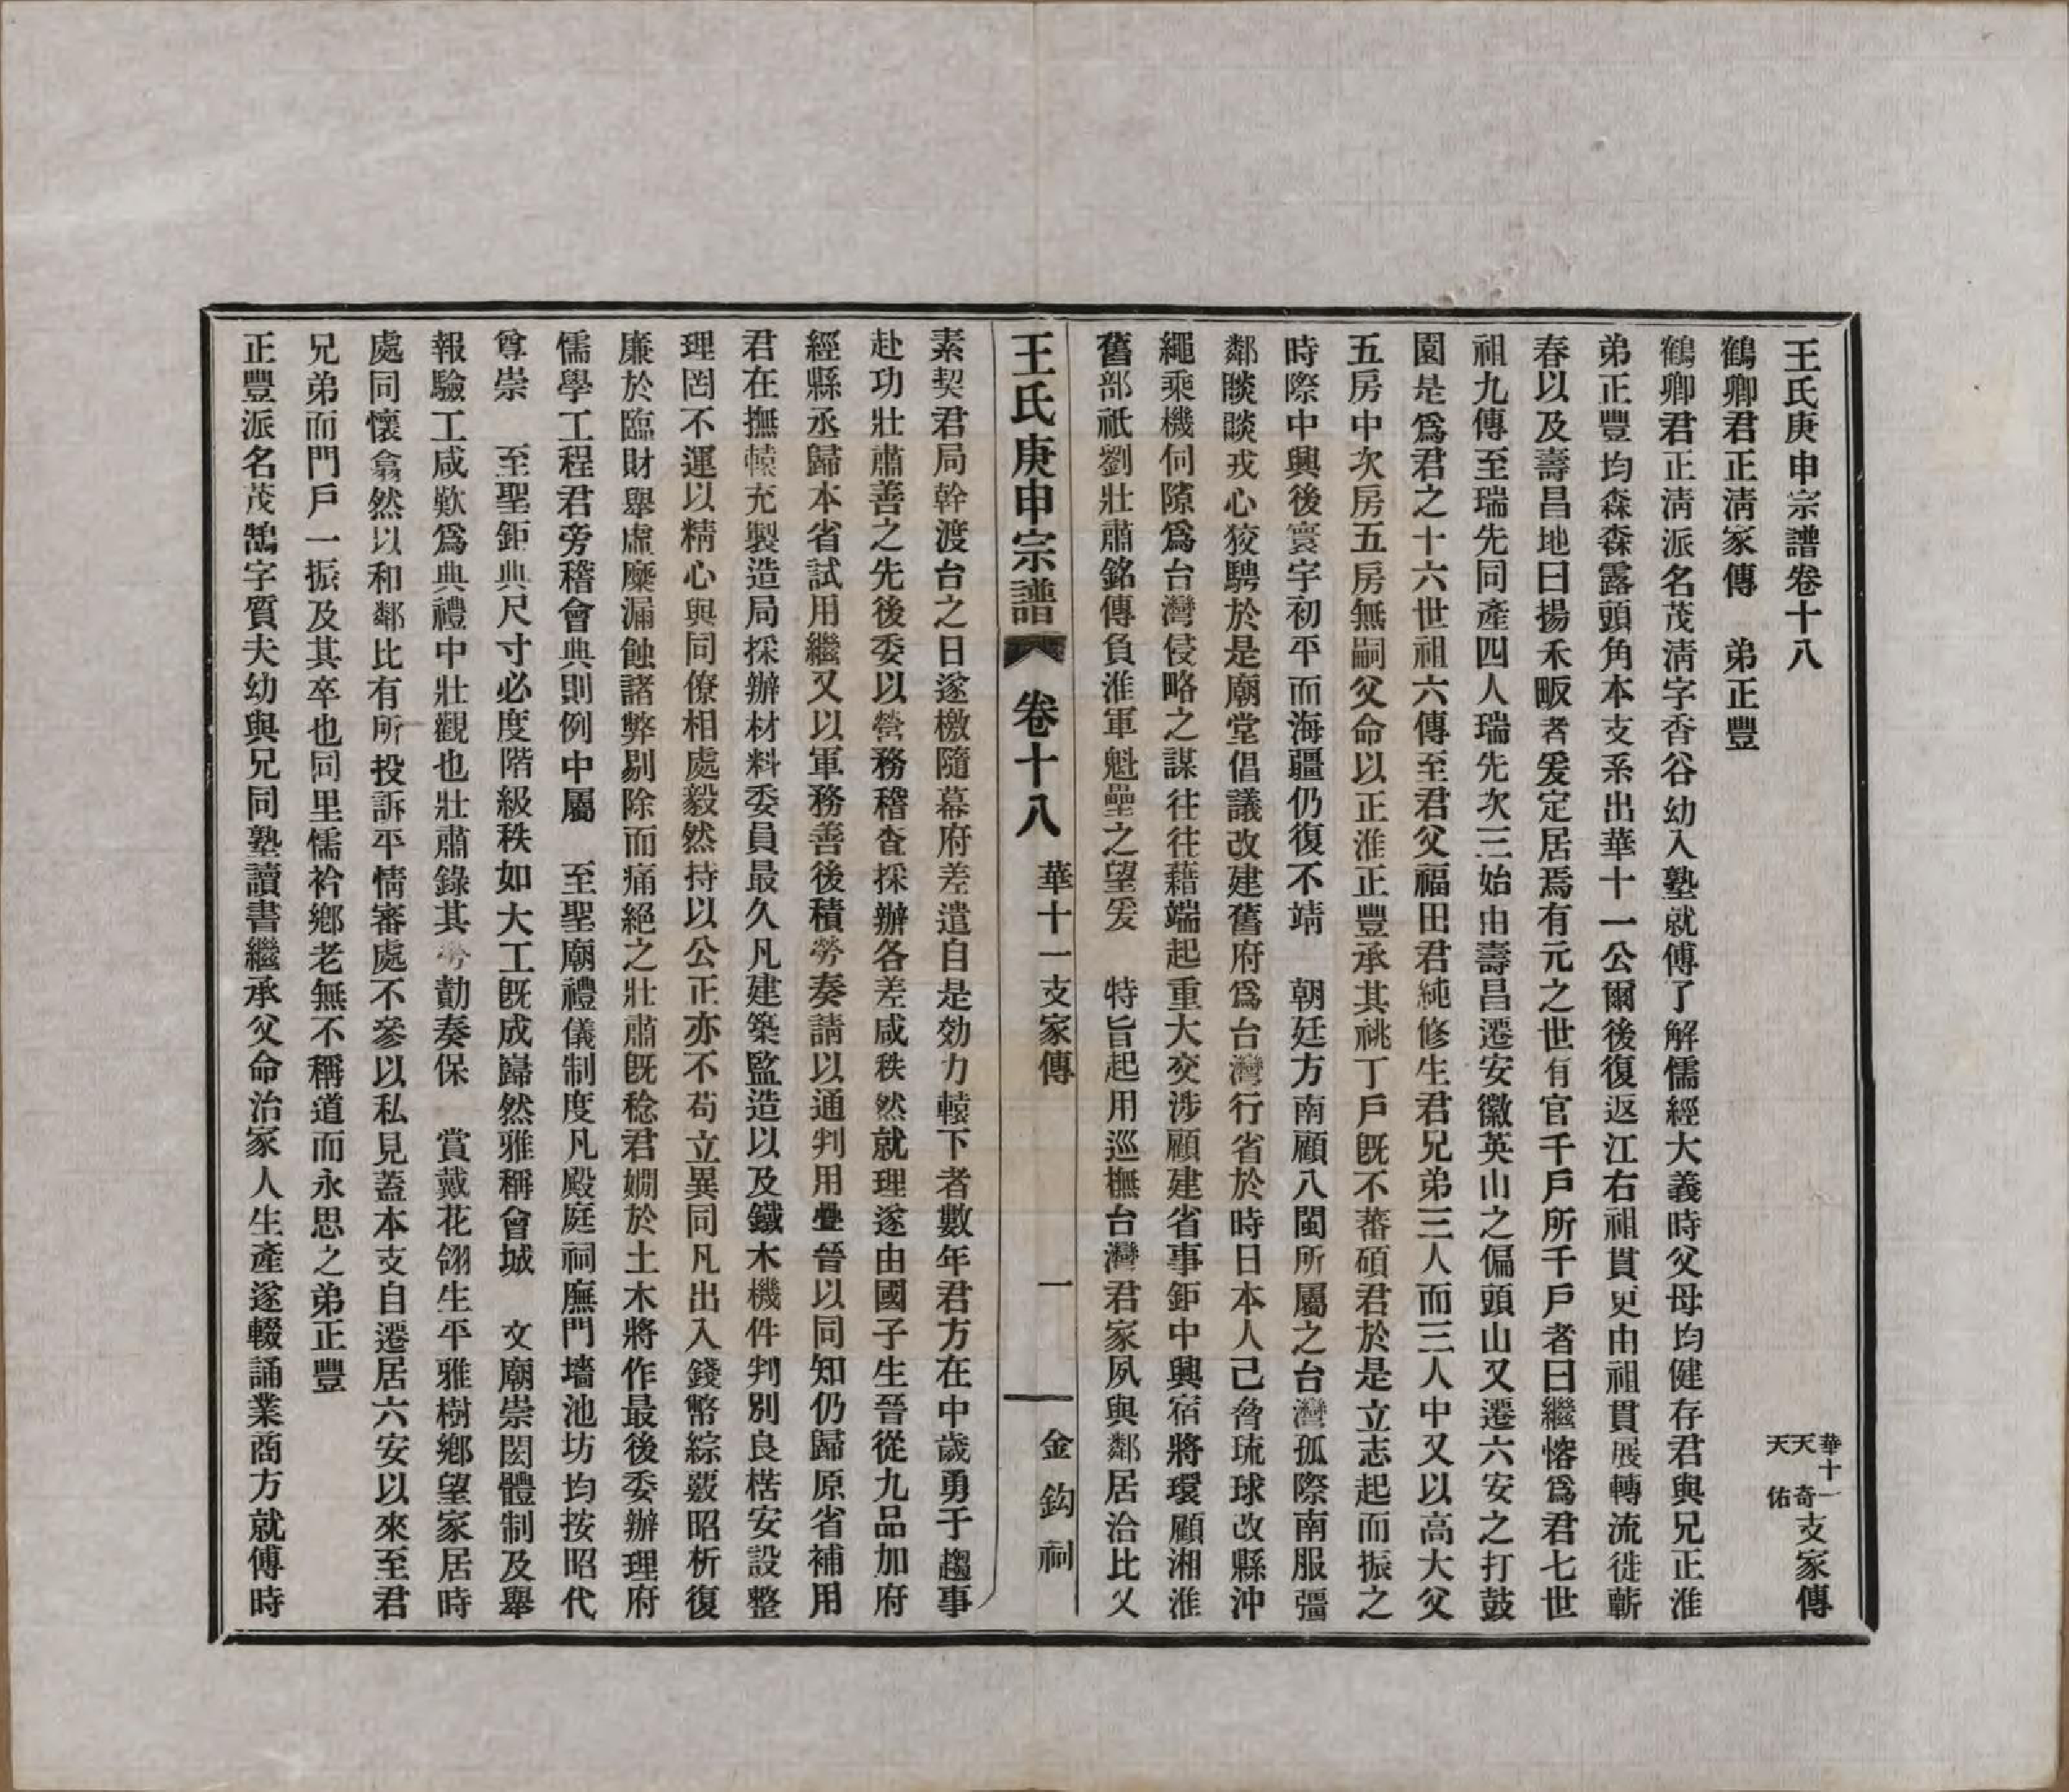 王氏庚申宗譜卷十八　華十一天奇天佑支家傳
鶴卿君正淸家傳　弟正豐
鶴卿君正淸派名茂淸字香谷幼入塾就傅了解儒經大義時父母均健存君與兄正淮
弟正豐均森森露頭角本支系出華十一公爾後復返江右祖貫更由祖貫展轉流徙蘄
春以及壽昌地曰揚禾畈者爰定居焉有元之世有官千戶所千戶者曰繼愹爲君七世
祖九傳至瑞先同產四人瑞先次三始由壽昌遷安徽英山之偏頭山又遷六安之打鼓
園是爲君之十六世祖六傳至君父福田君純修生君兄弟三人而三人中又以高大父
五房中次房五房無嗣父命以正淮正豐承其祧丁戶旣不蕃碩君於是立志起而振之
時際中興後寰宇初平而海疆仍復不靖　朝廷方南顧八閩所屬之台灣孤際南服彊
鄰睒睒戎心狡騁於是廟堂倡議改建舊府爲台灣行省於時日本人已脅琉球改縣沖
繩乘機伺隙爲台灣侵略之謀往往藉端起重大交涉顧建省事鉅中興宿將環顧湘淮
舊部祇劉壯肅銘傳負淮軍魁壘之望爰　特旨起用巡撫台灣君家夙與鄰居洽比乂
王氏庚申宗譜　卷十八　華十一支家傳　一　金鈎祠
素契君局幹渡台之日遂檄隨幕府差遣自是効力轅下者數年君方在中歲勇于趨事
赴功壯肅善之先後委以營務稽查採辦各差咸秩然就理遂由國子生晉從九品加府
經縣丞歸本省試用繼又以軍務善後積勞奏請以通判用疊晉以同知仍歸原省補用
君在撫轅充製造局採辦材料委員最久凡建築監造以及鐵木機件判別良楛安設整
理罔不運以精心與同僚相處毅然持以公正亦不苟立異同凡出入錢幣綜覈昭析復
廉於臨財舉虛糜漏蝕諸弊剔除而痛絕之壯肅旣稔君嫺於土木將作最後委辦理府
儒學工程君旁稽會典則例中屬　至聖廟禮儀制度凡殿庭祠廡門墻池坊均按昭代
尊崇　至聖鉅典尺寸必度階級秩如大工旣成巋然雅稱會城　文廟崇閎體制及舉
報驗工咸歎爲典禮中壯觀也壯肅錄其勞勣奏保　賞戴花翎生平雅樹鄉望家居時
處同懷翕然以和鄰比有所投訴平情審處不參以私見蓋本支自遷居六安以來至君
兄弟而門戶一振及其卒也同里儒衿鄉老無不稱道而永思之弟正豐
正豐派名茂鵠字質夫幼與兄同塾讀書繼承父命治家人生產遂輟誦業商方就傅時